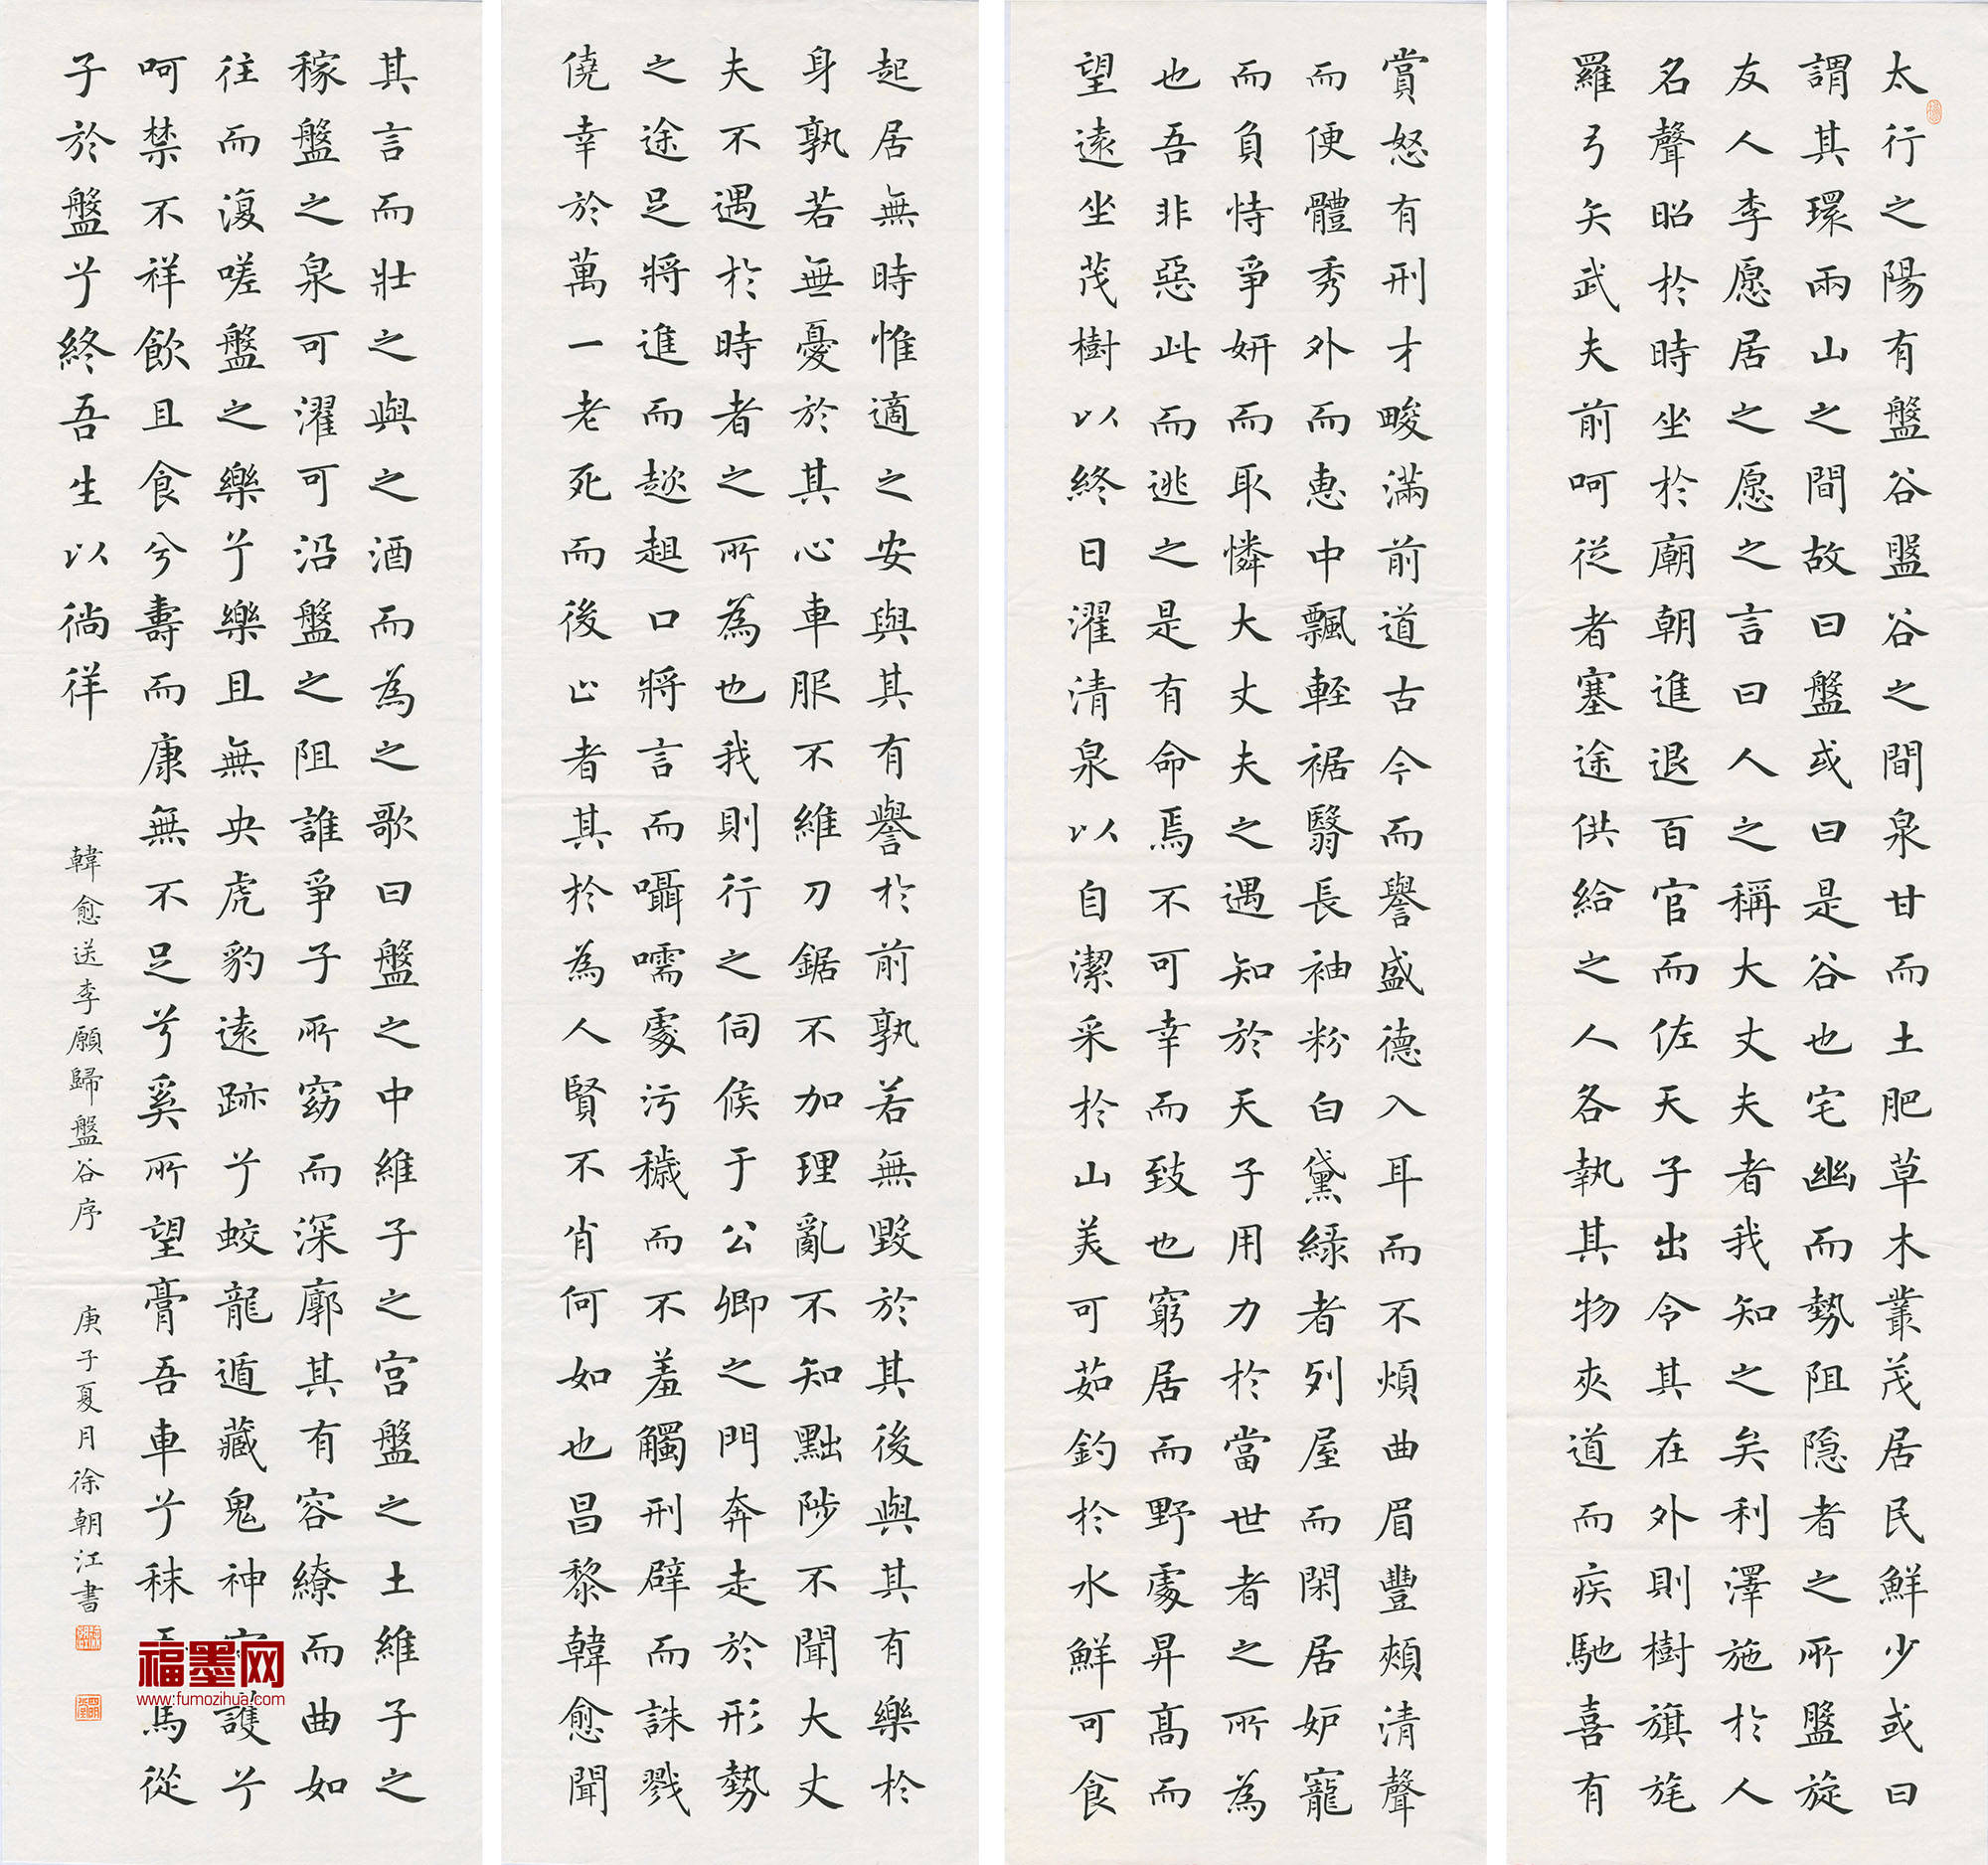 太行之陽有盤谷盤谷之間泉甘而土肥草木叢茂居民鮮少或曰
謂其環兩山之間故曰盤或曰是谷也宅幽而勢阻隱者之所盤旋
友人李愿居之愿之言曰人之稱大丈夫者我知之矣利澤施於人
名聲昭於時坐於廟朝進退百官而佐天子出令其在外則樹旗旄
羅弓矢武夫前呵從者塞途供給之人各執其物夾道而疾馳喜有
賞怒有刑才畯滿前道古今而譽盛德入耳而不煩曲眉豐頰清聲
而便體秀外而惠中飄輕裾翳長袖粉白黛綠者列屋而閑居妒寵
而負恃爭妍而取憐大丈夫之遇知於天子用力於當世者之所為
也吾非惡此而逃之是有命焉不可幸而致也窮居而野處昇高而
望遠坐茂樹以終日濯清泉以自潔采於山美可茹釣於水鮮可食
起居無時惟適之安與其有譽於前孰若無毀於其後與其有樂於
身孰若無憂於其心車服不維刀鋸不加理亂不知黜陟不聞大丈
夫不遇於時者之所為也我則行之伺候于公卿之門奔走於形勢
之途足將進而趑趄口將言而囁嚅處污穢而不羞觸刑辟而誅戮
僥幸於萬一老死而後止者其於為人賢不肖何如也昌黎韓愈聞
其言而壯之與之酒而為之歌曰盤之中維子之宮盤之土維子之
稼盤之泉可濯可沿盤之阻誰爭子所窈而深廓其有容繚而曲如
往而復嗟盤之樂兮樂且無央虎豹遠跡兮蛟龍遁藏鬼神守護兮
呵禁不祥飲且食兮壽而康無不足兮奚所望膏吾車兮秣吾馬從
子於盤兮終吾生以徜徉
韓愈送李願歸盤谷序 庚子夏月徐朝江書
福墨网
www.fumozihua.com